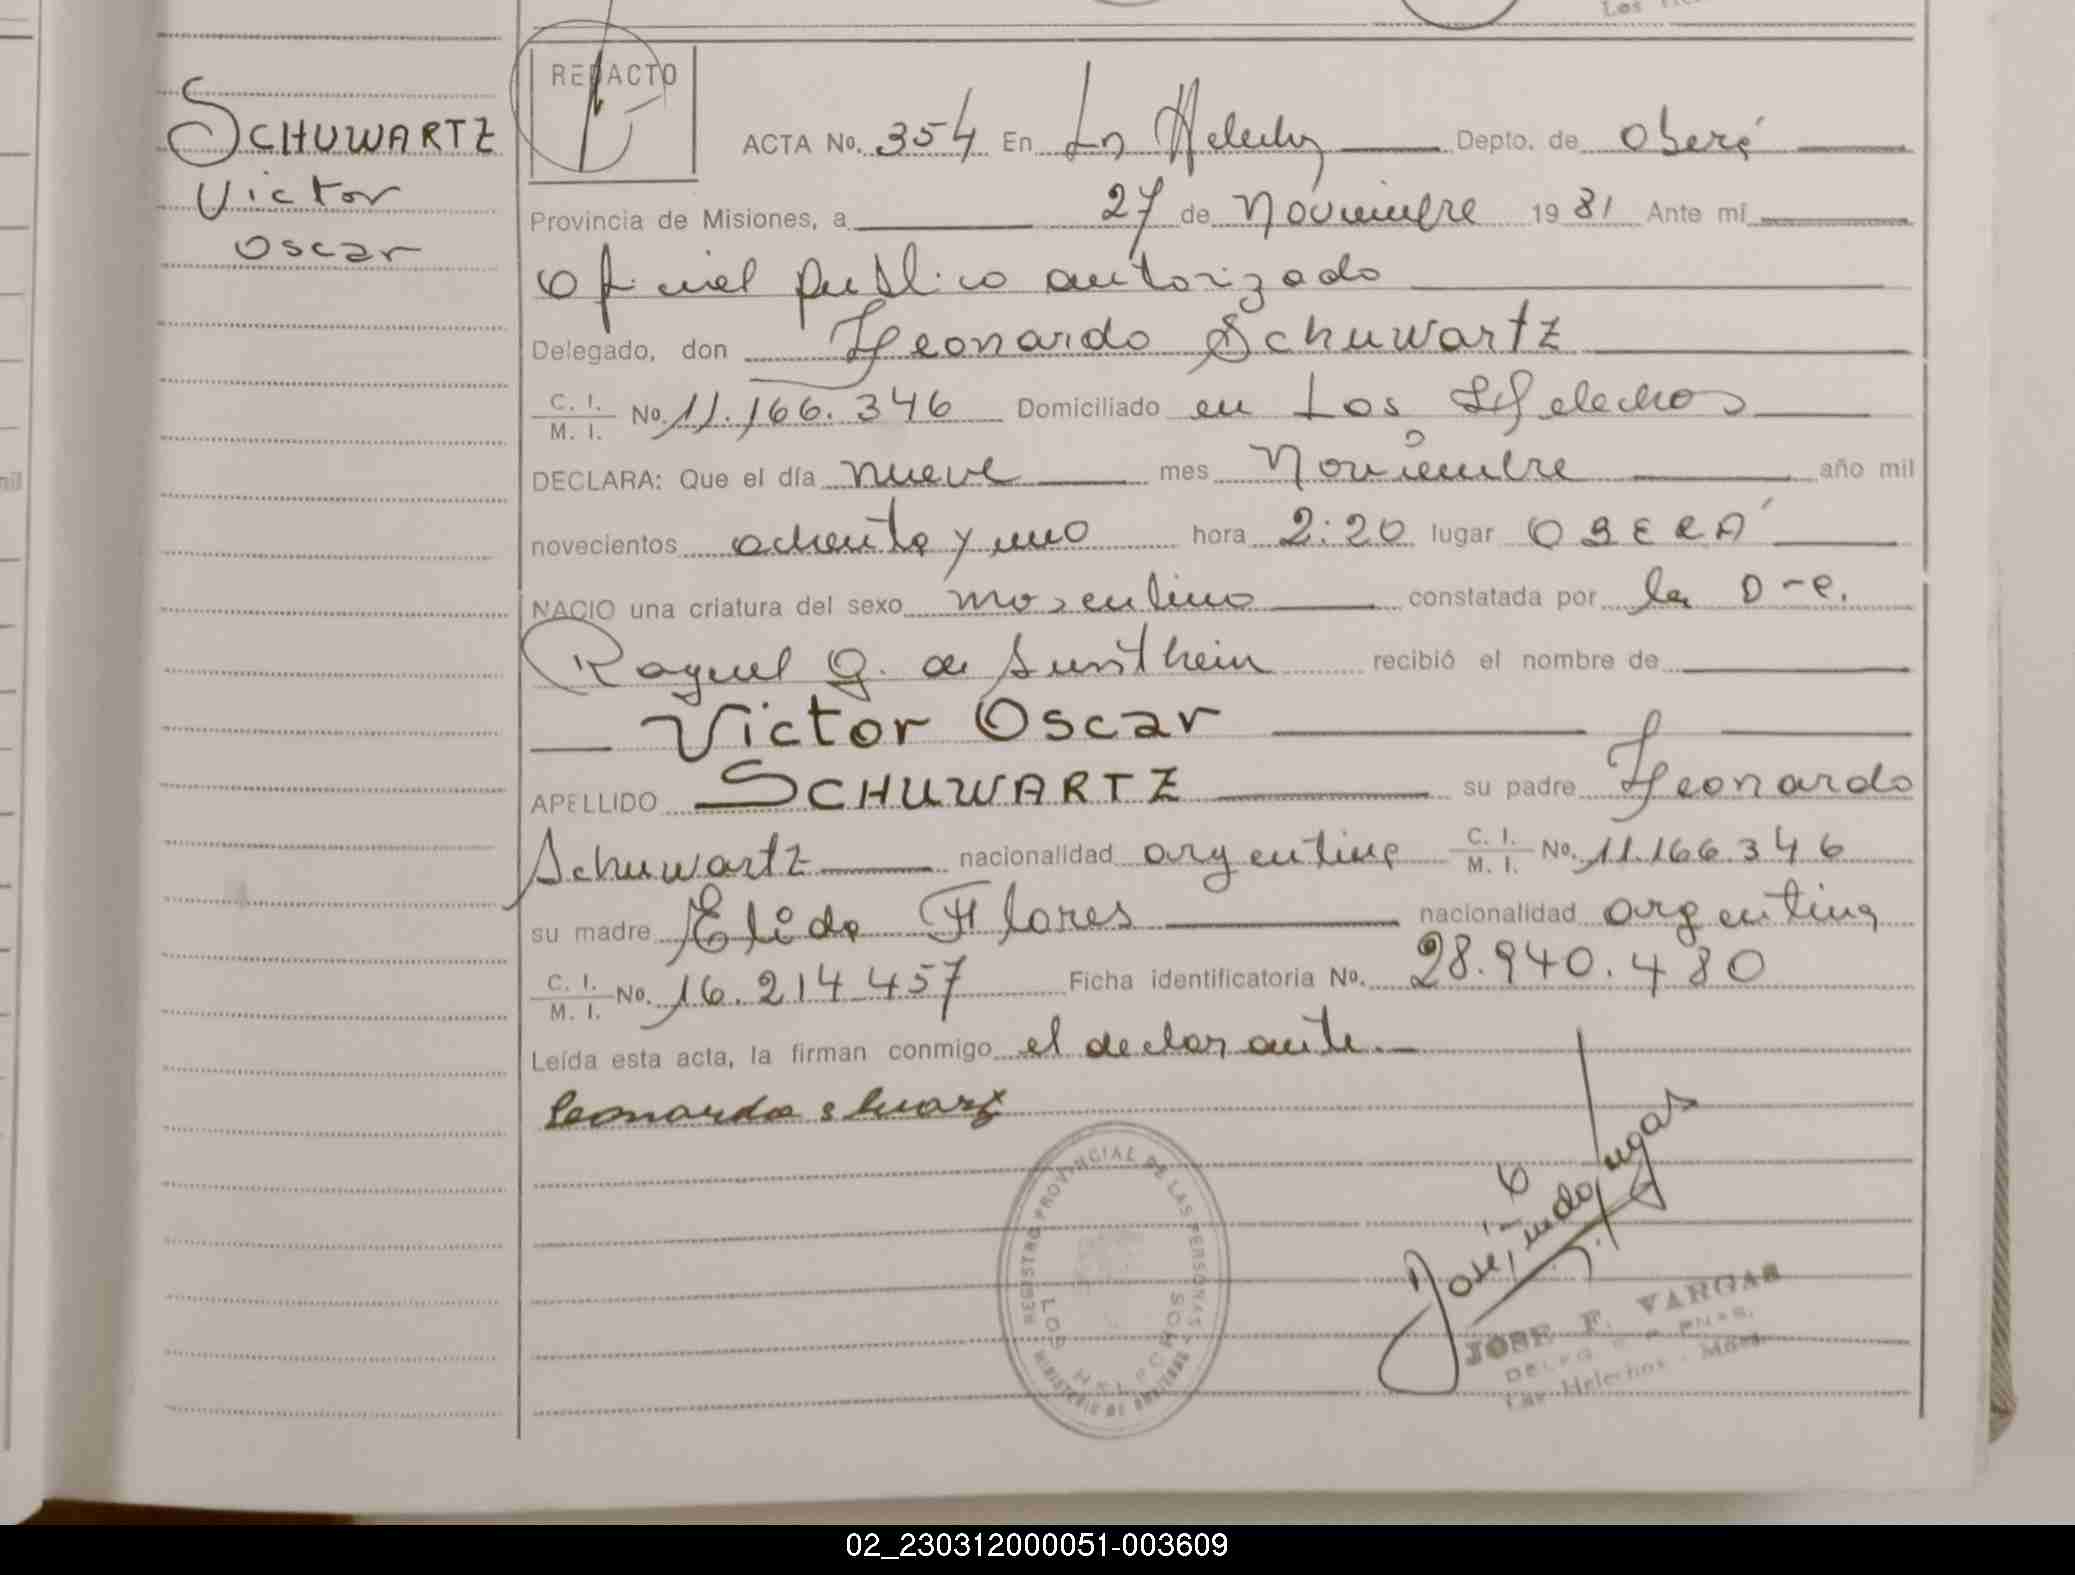 SCHUWARTZ
Victor
Oscar
REDACTO
ACTA No. 354 En Los Helechos Depto. de Oberá
Provincia de Misiones, a 27 de Noviembre 1981 Ante mí
Oficial publico autorizado
Delegado, don Leonardo Schuwartz
C. I. / M. I. No. 11.166.346 Domiciliado en Los Helechos
DECLARA: Que el día nueve mes Noviembre año mil
novecientos ochenta y uno hora 2:20 lugar OBERÁ
NACIO una criatura del sexo masculino constatada por la
Raquel G. de recibió el nombre de
Victor Oscar
APELLIDO SCHUWARTZ su padre Leonardo
Schuwartz nacionalidad argentina C. I. / M. I. No. 11.166.346
su madre Elida Flores nacionalidad argentina
C. I. / M. I. No. 16.214.457 Ficha identificatoria No. 28.940.480
Leída esta acta, la firman conmigo el declarante.
Leonardo
REGISTRO PROVINCIAL DE LAS PERSONAS
LOS HELECHOS
MINISTERIO DE GOBIERNO
JOSE F. VARGAS
Los Helechos - Mnes.
02_230312000051-003609